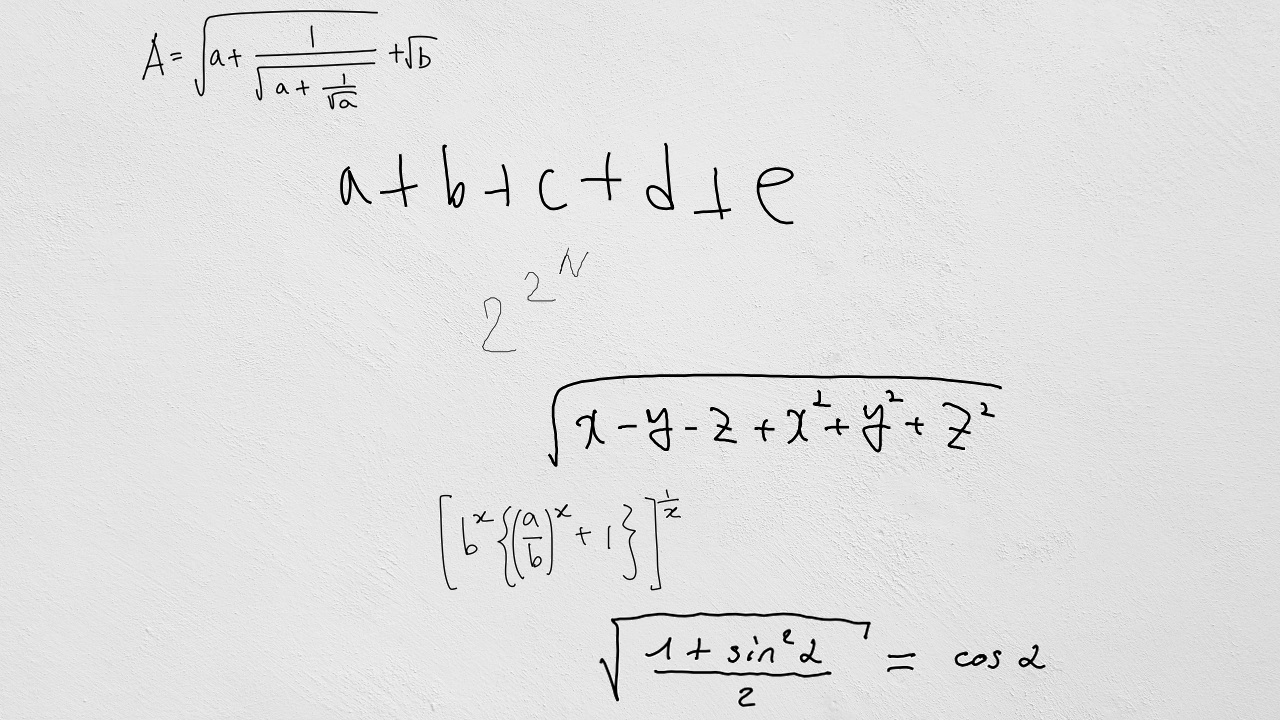 A = \sqrt{a + \frac{1}{\sqrt{a + \frac{1}{\sqrt{a}}}}} + \sqrt{b}
a + b + c + d + e
2^{2^{N}}
\sqrt{x - y - z + x^2 + y^2 + z^2}
\left[ b^x \left\{ \left( \frac{a}{b} \right)^x + 1 \right\} \right]^{\frac{1}{x}}
\sqrt{\frac{1 + \sin^2 \alpha}{2}} = \cos \alpha